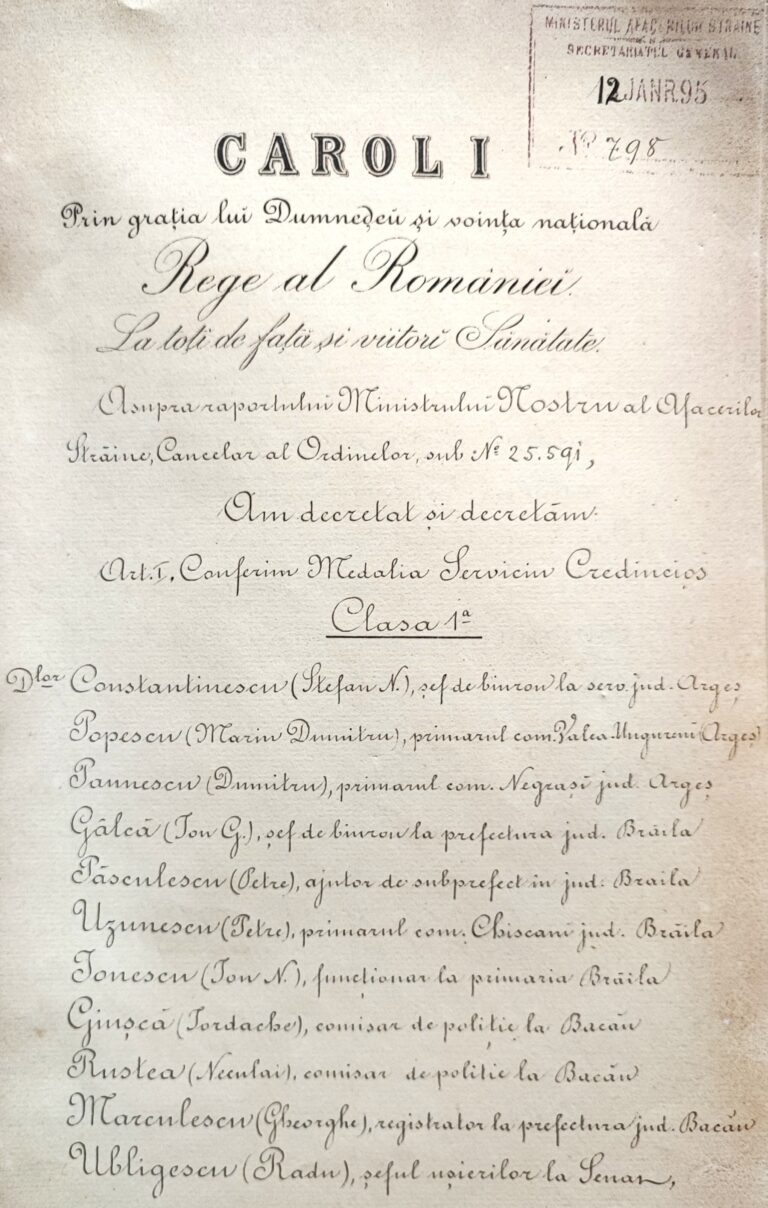 MINISTERUL AFACERILOR STRAINE
SECRETARIATUL GENERAL
12 JANR 95
No 798
CAROL I
Prin grația lui Dumnedeŭ și voința națională
Rege al României.
La toți de față și viitorĭ Sănătate.
Asupra raportuluĭ Ministruluĭ Nostru al Afacerilor
Străine, Cancelar al Ordinelor, sub No 25.591,
Am decretat și decretăm:
Art. I, Conferim Medalia Serviciu Credincios
Clasa 1a
Dlor Constantinescu (Stefan N.), șef de biurou la serv. jud. Argeș
Popescu (Marin Dumitru), primarul com. Valea-Ungureni (Argeș)
Paunescu (Dumitru), primarul com. Negrașĭ jud. Argeș
Gâlcă (Ion G.), șef de biurou la prefectura jud. Brăila
Păsculescu (Petre), ajutor de subprefect in jud. Braila
Uzunescu (Petre), primarul com. Chiscani jud. Brăila
Ionescu (Ion N.), funcționar la primaria Brăila
Giușcă (Iordache), comisar de politie la Bacău
Rustea (Neculai), comisar de politie la Bacău
Marculescu (Gheorghe), registrator la prefectura jud. Bacău
Ubligescu (Radu), șeful ușierilor la Senat,